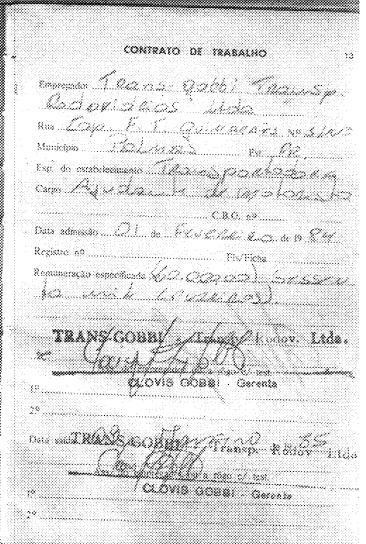 CONTRATO DE TRABALHO
13
Empregador Trans-Gobbi Transp.
Rodoviários Ltda
Rua Cap. F. T. Guimarães Nº S/Nº
Município Palmas Est. PR.
Esp. do estabelecimento Transportadora
Cargo Ajudante de motorista
C.B.O. nº
Data admissão 01 de Fevereiro de 1984
Registro nº Fls/Ficha
Remuneração especificada (60.000,00) Sessen
ta mil cruzeiros).
TRANS GOBBI - Transp. Rodov. Ltda.
a rôgo c/ test.
CLOVIS GOBBI - Gerente
1º
2º
Data saída de de 19 85
TRANS GOBBI - Transp. Rodov Ltda
a rôgo c/ test.
CLOVIS GOBBI - Gerente
1º
2º